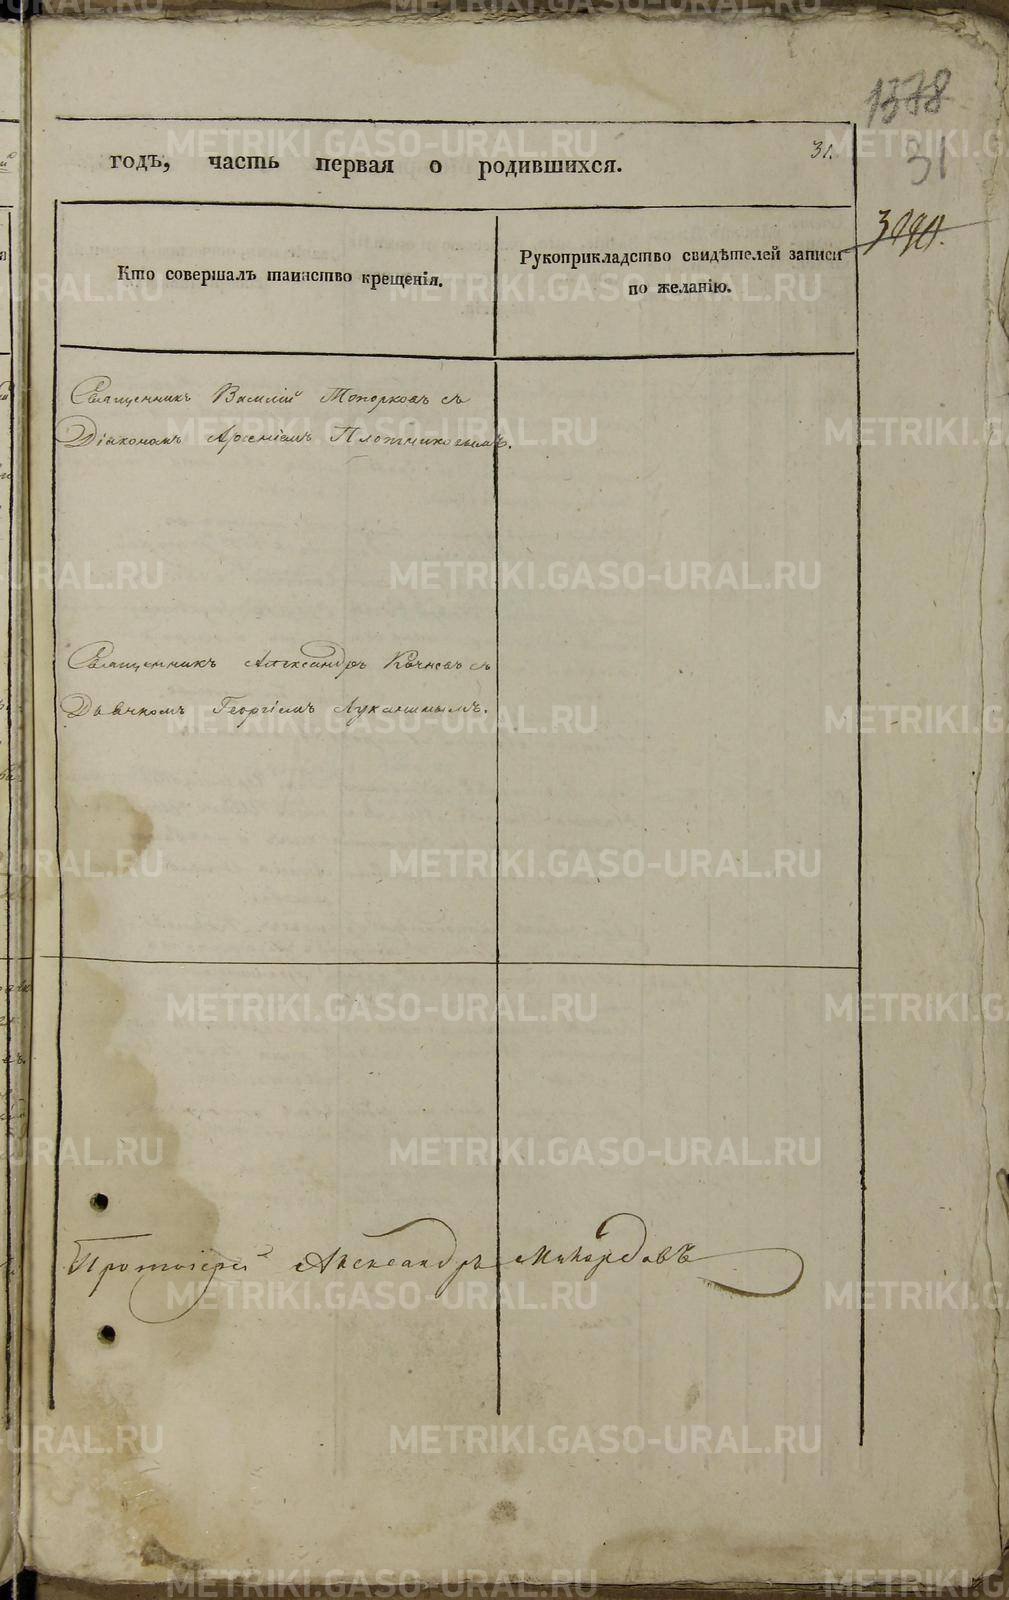 1378
годъ, часть первая о родившихся.
31.
31
Кто совершалъ таинство крещенія.
Рукоприкладство свидѣтелей записи
по желанію.
Священникъ Василій Топорковъ съ
Діакономъ Арсеніемъ Плотниковымъ.
Священникъ Александръ Кочневъ съ
Дьячкомъ Георгіемъ Луканинымъ.
Протоіерей Александръ
METRIKI.GASO-URAL.RU